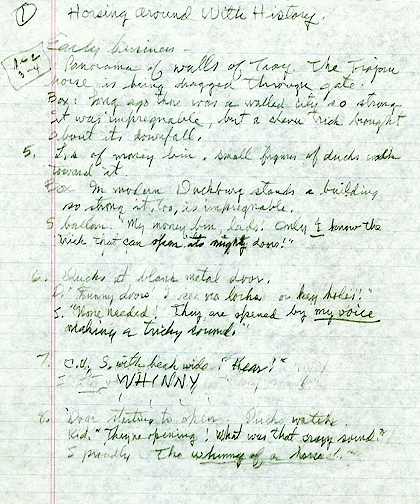 1
Horsing around With History.
1-2
3-4
Early business -
Panorama of walls of Troy. The Trojan
horse is being dragged through gate.
Box: Long ago there was a walled city so strong
it was impregnable, but a clever trick brought
about its downfall.
5. L.s. of money bin. small figures of ducks walk
toward it.
Box In modern Duckburg stands a building
so strong it, too, is impregnable.
S balloon. "My money bin, lads! Only I know the
trick that can open its mighty doors!"
6. ducks at blank metal door.
D: "Funny doors I see no locks or key holes!"
S. "None needed! They are opened by my voice
making a tricky sound."
7. C.U. S. with beak wide. "Hear!"
WHINNY
8. Door starting to open. Ducks watch.
Kid. "They're opening! What was that crazy sound?"
S proudly. The whinny of a horse!"